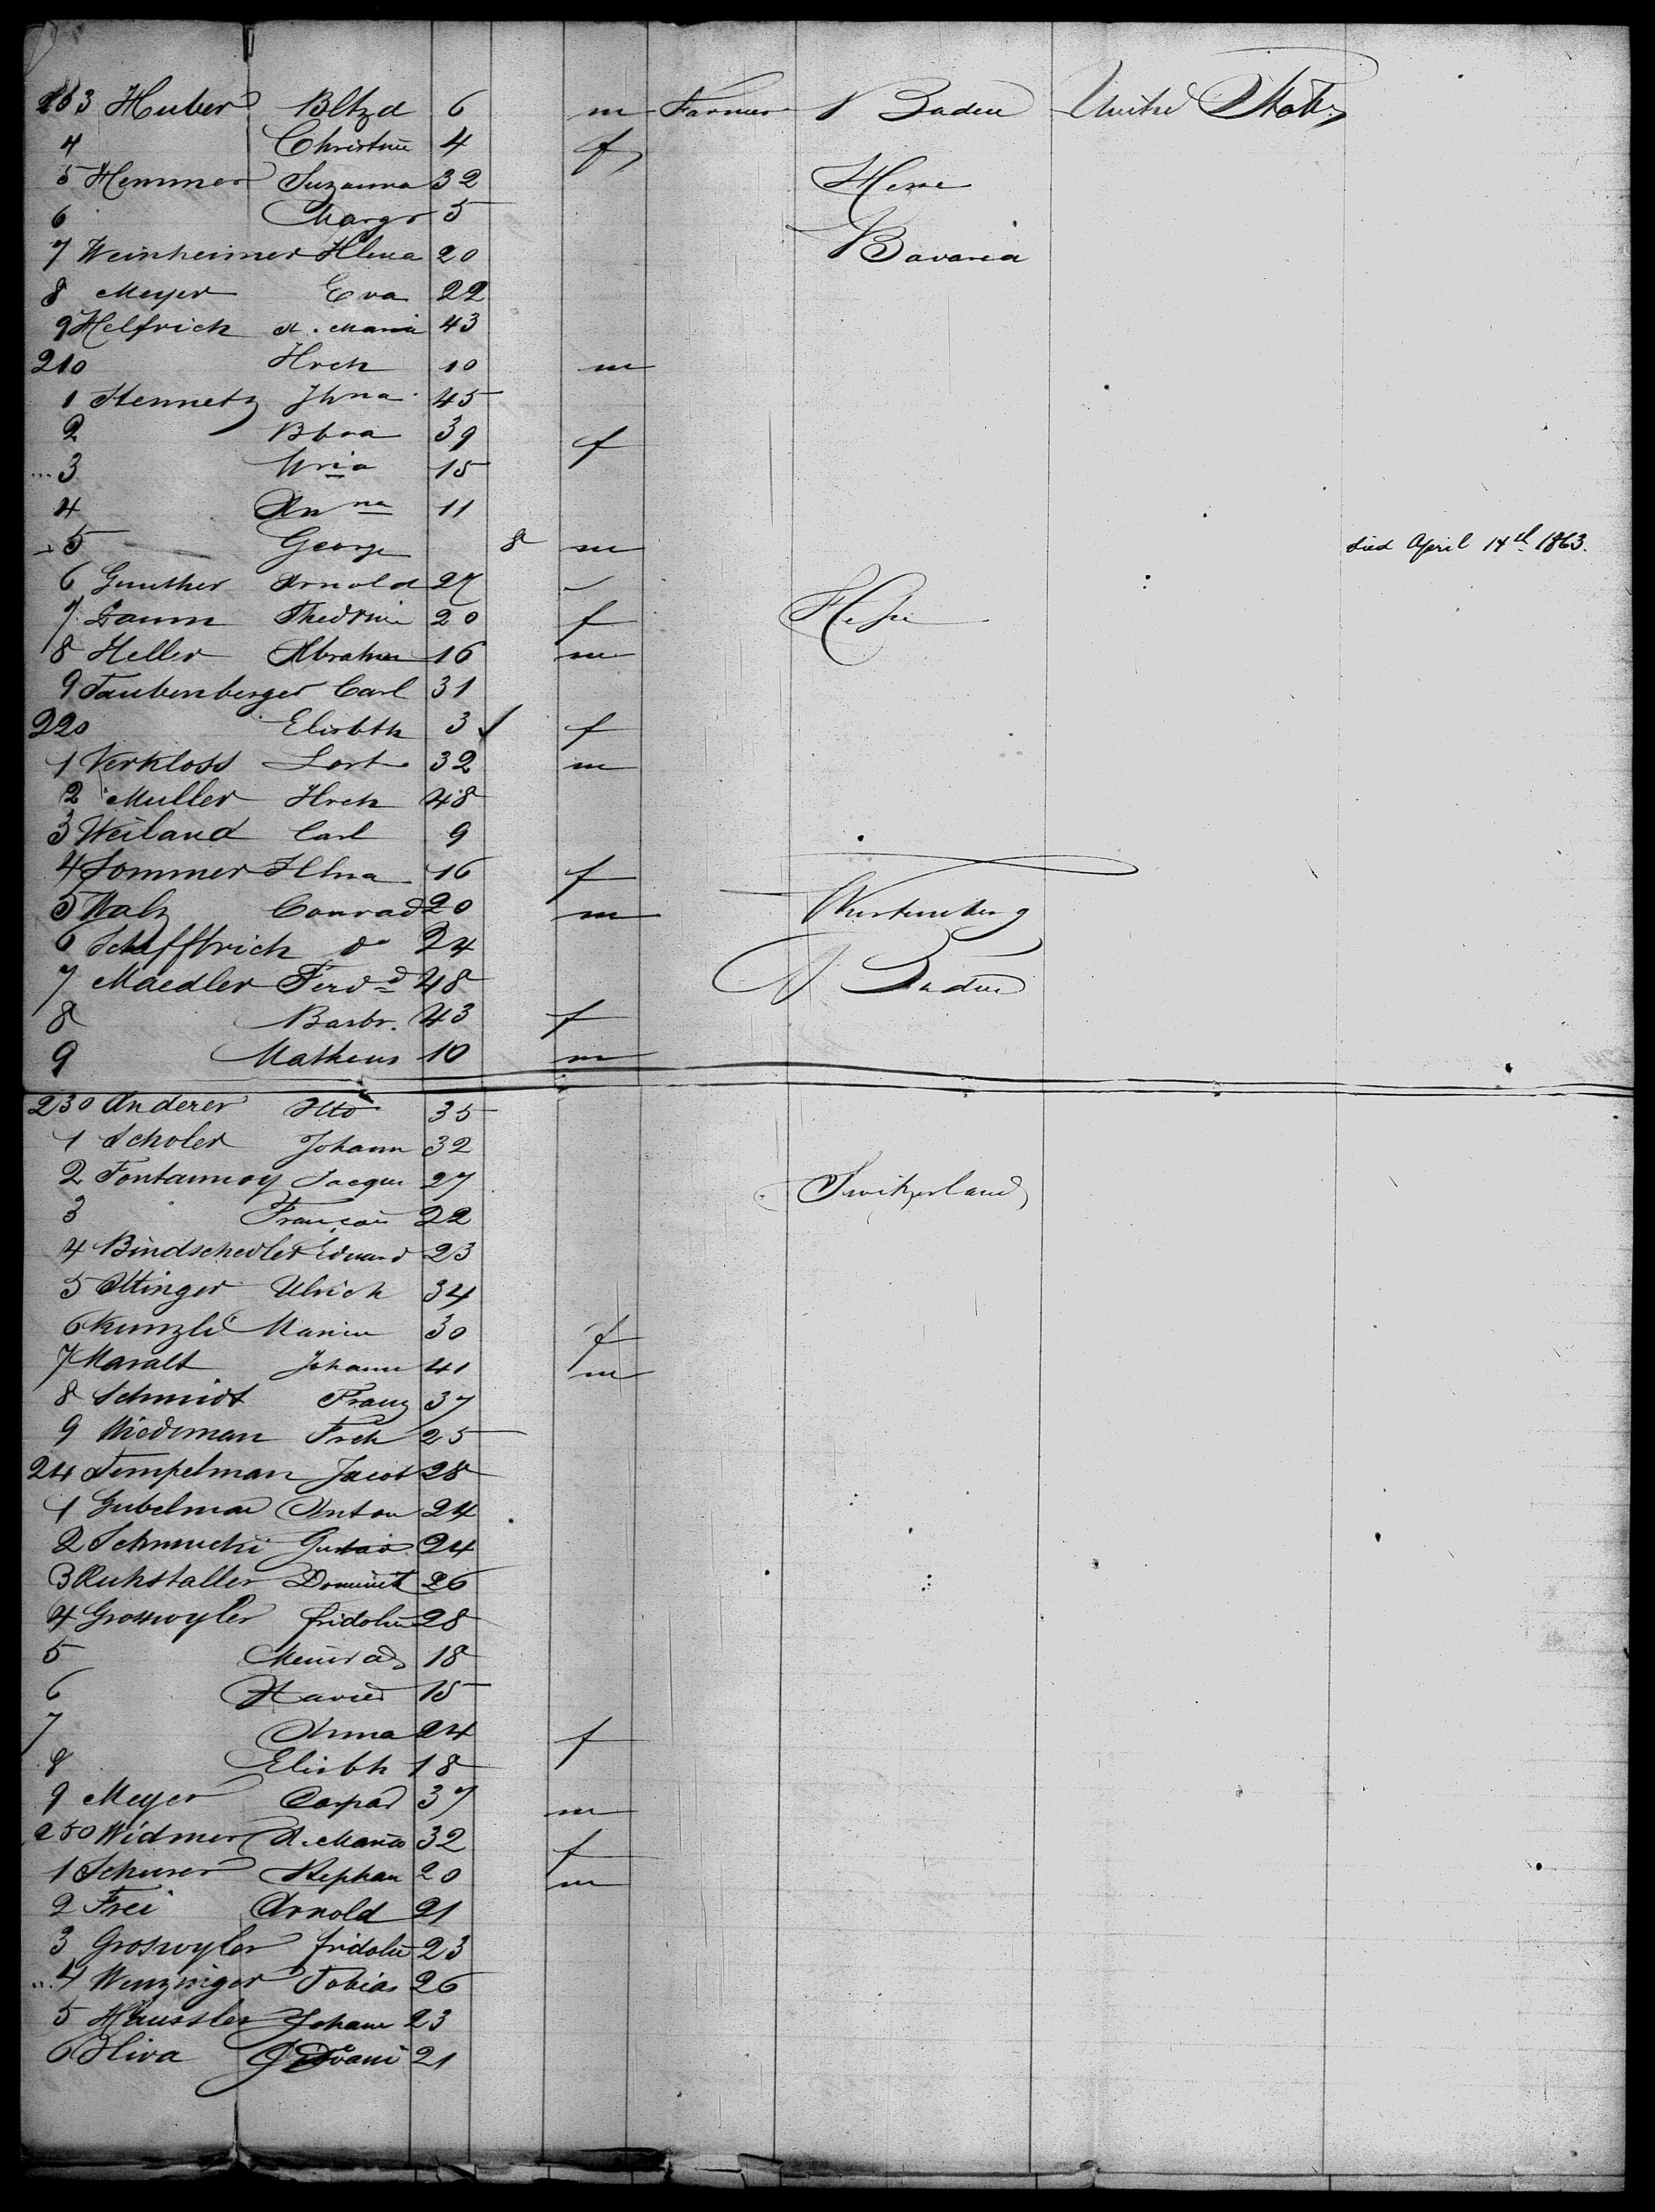 203 Huber Bltzd 6 m Farmer Baden United States
4 Christine 4 f
5 Hemmer Suzanna 32 Hesse
6 Margr 5
7 Weinheimer Hlena 20 Bavaria
8 Meyer Eva 22
9 Helfrich A. Maria 43
210 Hrch 10 m
1 Stennetz Jhna 45
2 Bbra 39 f
3 Mria 15
4 Anna 11
5 George 8 m died April 14th 1863.
6 Gunther Arnold 27
7 Daum Thedrine 20 f Hesse
8 Heller Abraham 16 m
9 Taubenberger Carl 31
220 Elisbth 3 f
1 Verkloss 32 m
2 Muller Hrch 48
3 Weiland Carl 9
4 Sommer Hlna 16 f
5 Walz Conrad 20 m Wurtemberg
6 Scheffbrich do 24
7 Maedler Ferdd 48 Baden
8 Barbr. 43 f
9 Matheus 10 m
230 Anderer Otto 35
1 Scholer Johann 32
2 Fontannoy Jacque 27 Switzerland
3 Francois 22
4 Bindschedler Eduard 23
5 Ottinger Ulrich 34
6 Kunzli Maria 30 f
7 Maralt Johann 41 m
8 Schmidt Franz 37
9 Wiedeman Frch 25
24 Tempelman Jacob 28
1 Gubelman Anton 24
2 Schmucki Gustav 24
3 Ruhstaller Dominik 26
4 Groswyler fridolin 28
5 Meinrad 18
6 Xavier 15
7 Anna 24 f
8 Elisbh 18
9 Meyer Caspar 37 m
250 Widmer A. Maria 32 f
1 Schurer Stephan 20 m
2 Frei Arnold 21
3 Groswyler fridolin 23
4 Wenzinger Tobias 26
5 Haussler Johann 23
6 Oliva 21